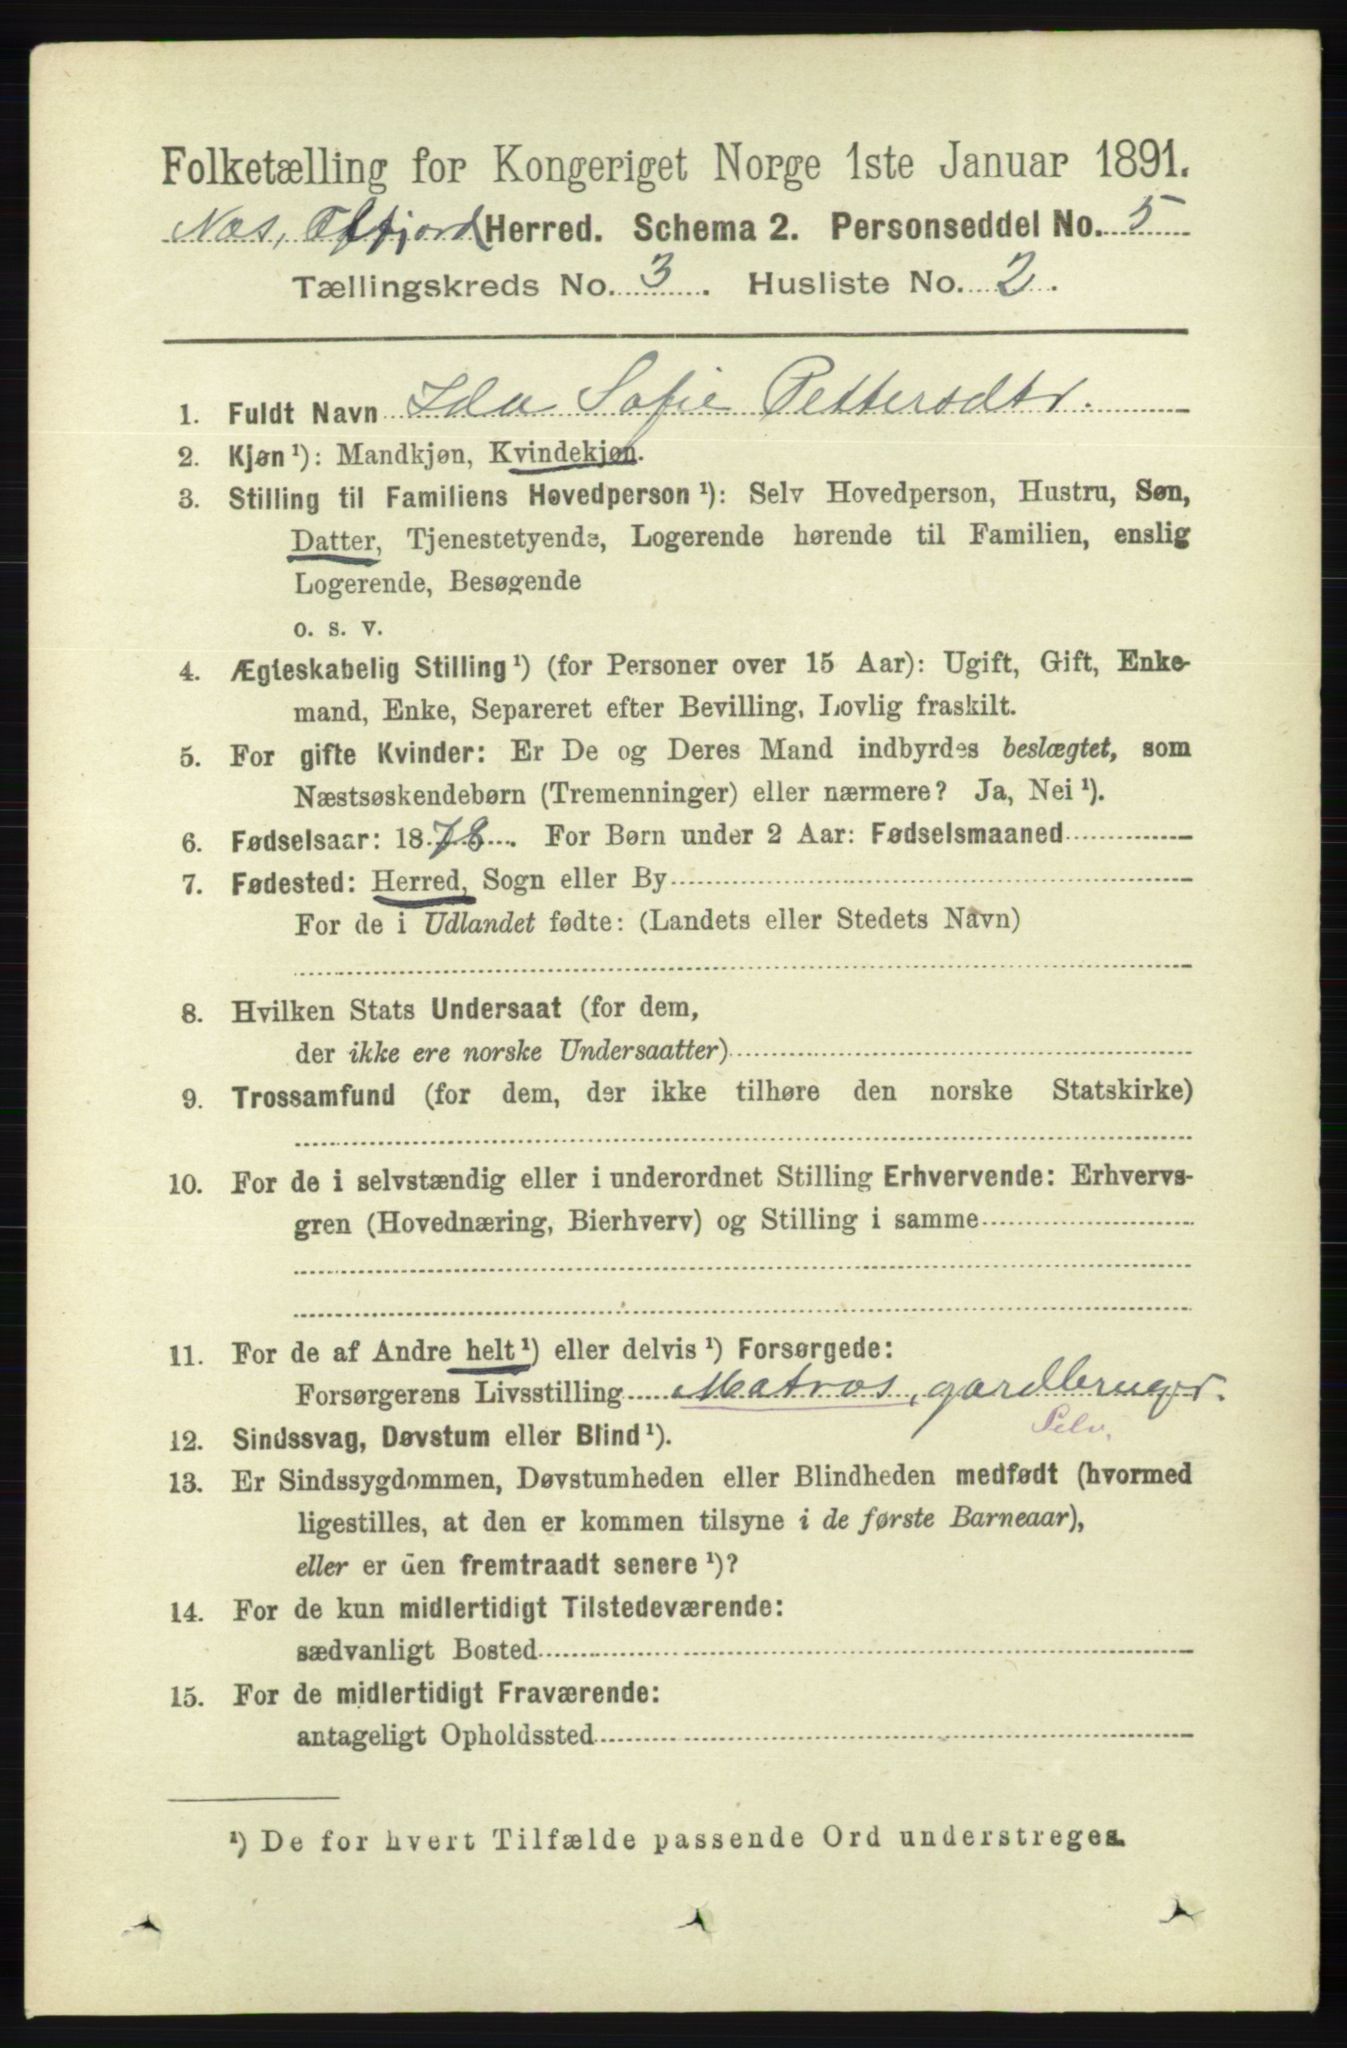 Folketælling for Kongeriget Norge 1ste Januar 1891.
Nes, Herred. Schema 2. Personseddel No. 5
Tællingskreds No. 3. Husliste No. 2.
1. Fuldt Navn Ida Sofie Pettersdtr.
2. Kjøn ¹): Mandkjøn, Kvindekjøn.
3. Stilling til Familiens Hovedperson ¹): Selv Hovedperson, Hustru, Søn,
Datter, Tjenestetyende, Logerende hørende til Familien, enslig
Logerende, Besøgende
o. s. v.
4. Ægteskabelig Stilling ¹) (for Personer over 15 Aar): Ugift, Gift, Enke-
mand, Enke, Separeret efter Bevilling, Lovlig fraskilt.
5. For gifte Kvinder: Er De og Deres Mand indbyrdes beslægtet, som
Næstsøskendebørn (Tremenninger) eller nærmere? Ja, Nei ¹).
6. Fødselsaar: 1878. For Børn under 2 Aar: Fødselsmaaned
7. Fødested: Herred, Sogn eller By
For de i Udlandet fødte: (Landets eller Stedets Navn)
8. Hvilken Stats Undersaat (for dem,
der ikke ere norske Undersaatter)
9. Trossamfund (for dem, der ikke tilhøre den norske Statskirke)
10. For de i selvstændig eller i underordnet Stilling Erhvervende: Erhvervs-
gren (Hovednæring, Bierhverv) og Stilling i samme
11. For de af Andre helt ¹) eller delvis ¹) Forsørgede:
Forsørgerens Livsstilling Matros, gardbruger.
Selv.
12. Sindssvag, Døvstum eller Blind ¹).
13. Er Sindssygdommen, Døvstumheden eller Blindheden medfødt (hvormed
ligestilles, at den er kommen tilsyne i de første Barneaar),
eller er den fremtraadt senere ¹)?
14. For de kun midlertidigt Tilstedeværende:
sædvanligt Bosted
15. For de midlertidigt Fraværende:
antageligt Opholdssted
¹) De for hvert Tilfælde passende Ord understreges.